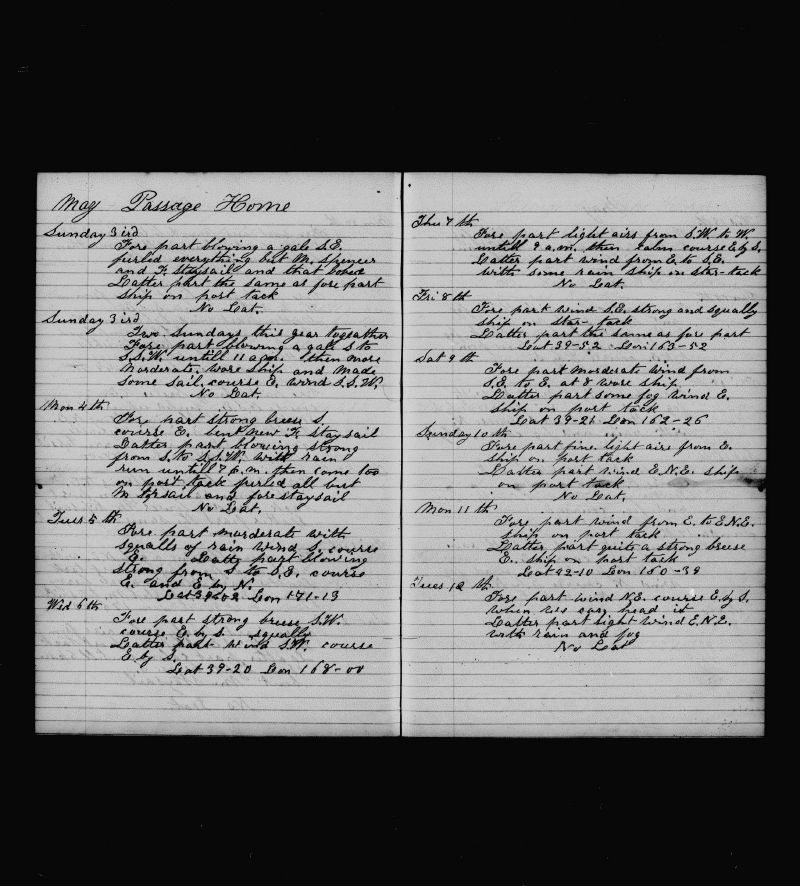 May Passage Home
Sunday 3ird
Fore part blowing a gale S.E.
furled everything but M. Spencer
and F. Staysail and that
Latter part the same as fore part
Ship on port tack
No Lat.
Sunday 3ird
Two Sundays this year togeather
Fore part blowing a gale S to
S.S.W. untill 11 a.m. then more
morderate. wore ship and made
some sail, course E. wind S.S.W.
No Lat.
Mon 4th
Fore part strong brease S.
course E. bent new F. staysail
Latter part blowing strong
from S. to S.S.W. with rain
run untill 7 p.m. then come too
on port tack furled all but
M Topsail and forestaysail
No Lat.
Tues 5th
Fore part morderate with
squalls of rain wind S. course
E. Latty part blowing
strong from S to S.E. course
E. and E by N.
Lat 39-02 Lon 171-13
Wed 6th
Fore part strong breese S.W.
course E. by S. squally
Latter part wind S.W. course
E by S.
Lat 39-20 Lon 168-00
Thu 7th
Fore part light airs from S.W. to W.
untill 9 a.m. then calm course E by S.
Latter part wind from E. to S.E.
with some rain ship on star-tack
No Lat.
Fri 8th
Fore part wind S.E. strong and squally
ship on star-tack
Latter part the same as fore part
Lat 39-52 Lon 163-52
Sat 9th
Fore part morderate wind from
S.E. to E. at 8 wore ship
Latter part some fog wind E.
ship on port tack
Lat 39-21 Lon 162-26
Sunday 10th
Fore part fine light airs from E.
ship on port tack
Latter part wind E.N.E. ship
on port tack
No Lat.
Mon 11th
Fore part wind from E. to E.N.E.
ship on port tack
Latter part quite a strong breese
E. ship on port tack
Lat 42-10 Lon 160-39
Tues 12 th.
Fore part wind N.E. course E. by S.
when we can head it
Latter part light wind E.N.E.
with rain and fog
No Lat